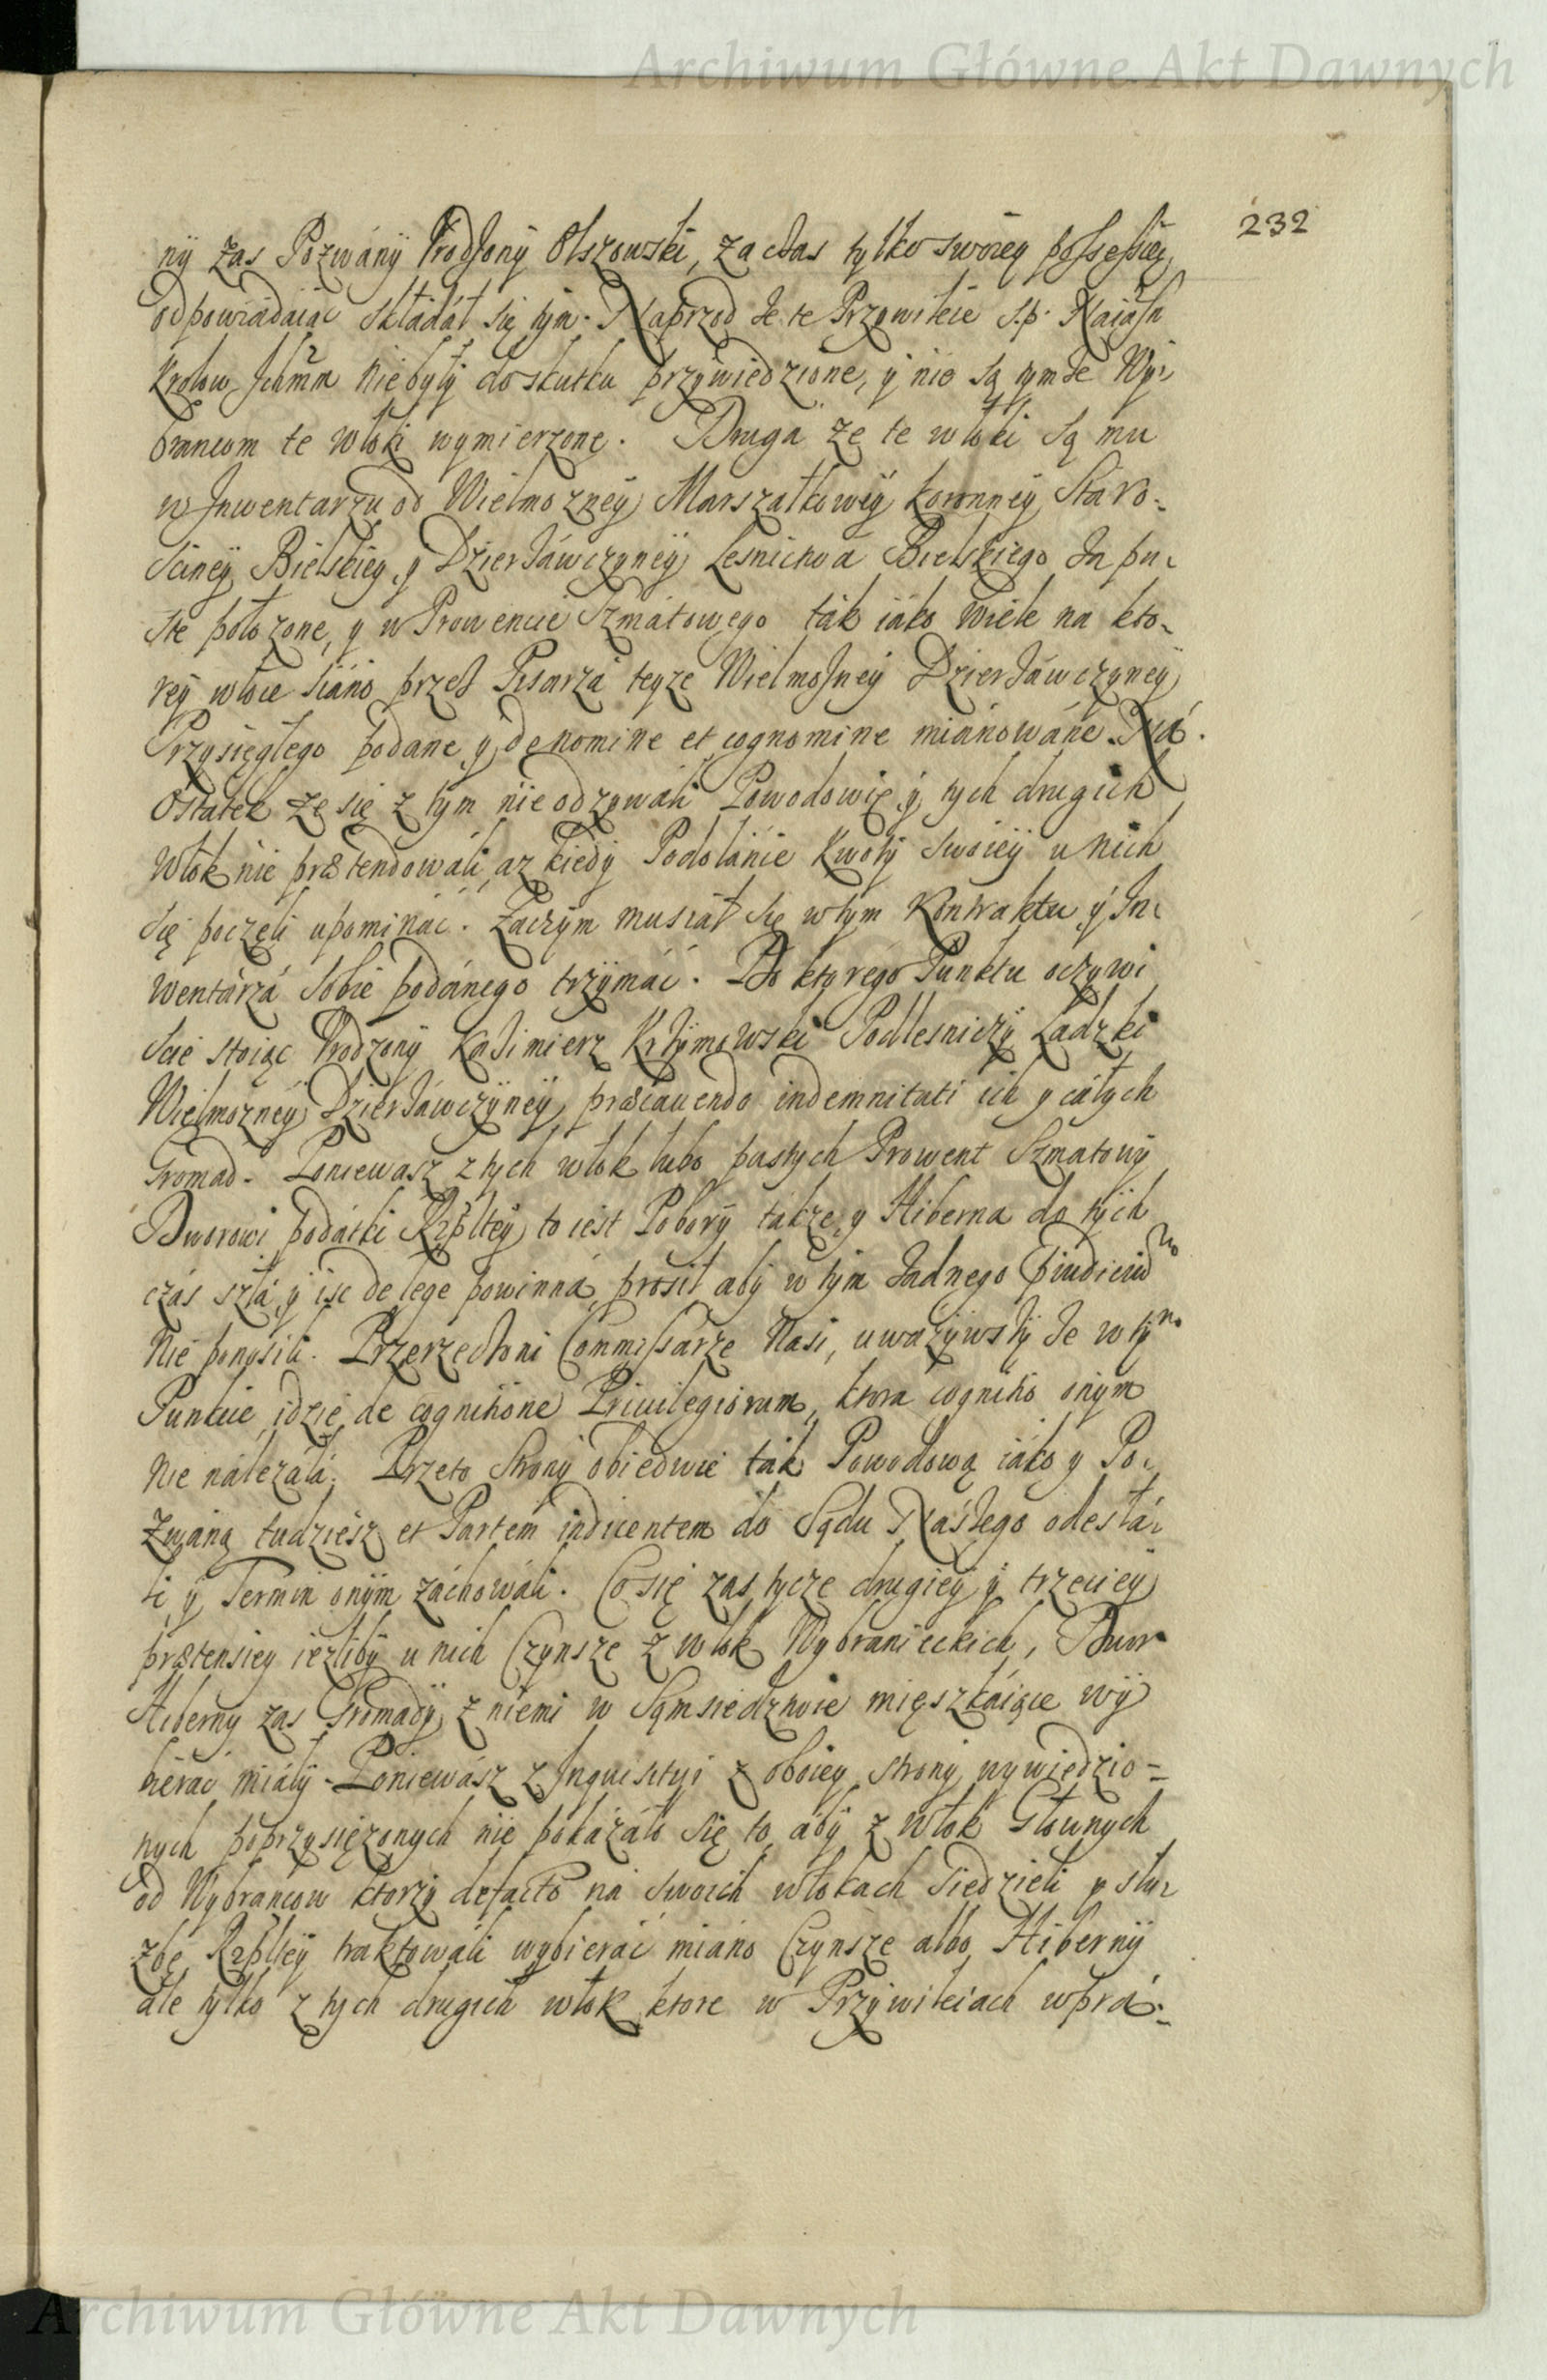 Archiwum Główne Akt Dawnych
232
ny zas Pozwány Urodzony Olszowski, za czas tylko swoiey possessiey
odpowiadaiąc składał się tym. Naprzod że te Przywileie s.p. Naiasn
Krolow Ichmm nie były do skutku przywiedzione, y nie są tymże Wy-
brancom te włoki wymierzone. Druga że te włoki są mu
w Inwentarzu od Wielmożney Marszałkowey koronney Staro-
sciney Bielskiey y Dzierżáwczyney Lesnictwa Bielskiego za pu-
ste położone, y w Prowencie Szmátowego ták iáko wiele na kto-
rey włoce siáno przez Pisarzá teyże Wielmożney Dzierżáwczyney
Przysięgłego podane y de nomine et cognomine miánowáne. Ná
Ostatek że się z tym nie odzywali Powodowie y tych drugich
Włok nie prætendowali, az kiedy Podolánie kwoty swoiey u nich
się poczęli upomináć. Zaczym musiał się w tym Kontraktu y In-
wentárzá sobie podánego trzymáć. Do ktorego Punktu oczywi
scie stoiąc Urodzony Kazimierz Krzymowski Podlesniczy Ladzki
Wielmożney Dzierżáwczyney, præcauendo indemnitati ich y całych
Gromad. Poniewasz z tych włok lubo pustych Prowent Szmatowy
Dworowi podátki Rzpltey to iest Pobory także y Hiberna do tych
czás szłá y isc de lege powinná, prosił aby w tym żadnego Piudicium
nie ponosili. Przerzeczoni Commissarze Nasi, uważywszy że w tym
Punkcie idzie de cognitione Priuilegiorum, ktora cognitio onym
nie należáłá. Przeto strony obiedwie ták Powodową iáko y Po-
zwáną tudziesz et Partem indicentem do Sądu Nászego odesłá-
li y Termin onym záchowáli. Co się zas tycze drugiey y trzeciey
prætensiey iezliby u nich Czynsze z włok Wybranieckich, Dwor
Hiberny zas Gromady z niemi w Sąmsiedztwie mięszkáiące wy
bieráć miáły. Poniewász z Inquisityi z oboiey strony wywiedzio-
nych poprzysiężonych nie pokázáło się to, aby z włok Głownych
od Wybrancow ktorzy de facto ná swoich włokach siedzieli y słu-
zbę Rzpltey traktowáli wybieráć miáno Czynsze albo Hiberny
ále tylko z tych drugich włok ktore w Przywileiach wprá-
Archiwum Główne Akt Dawnych